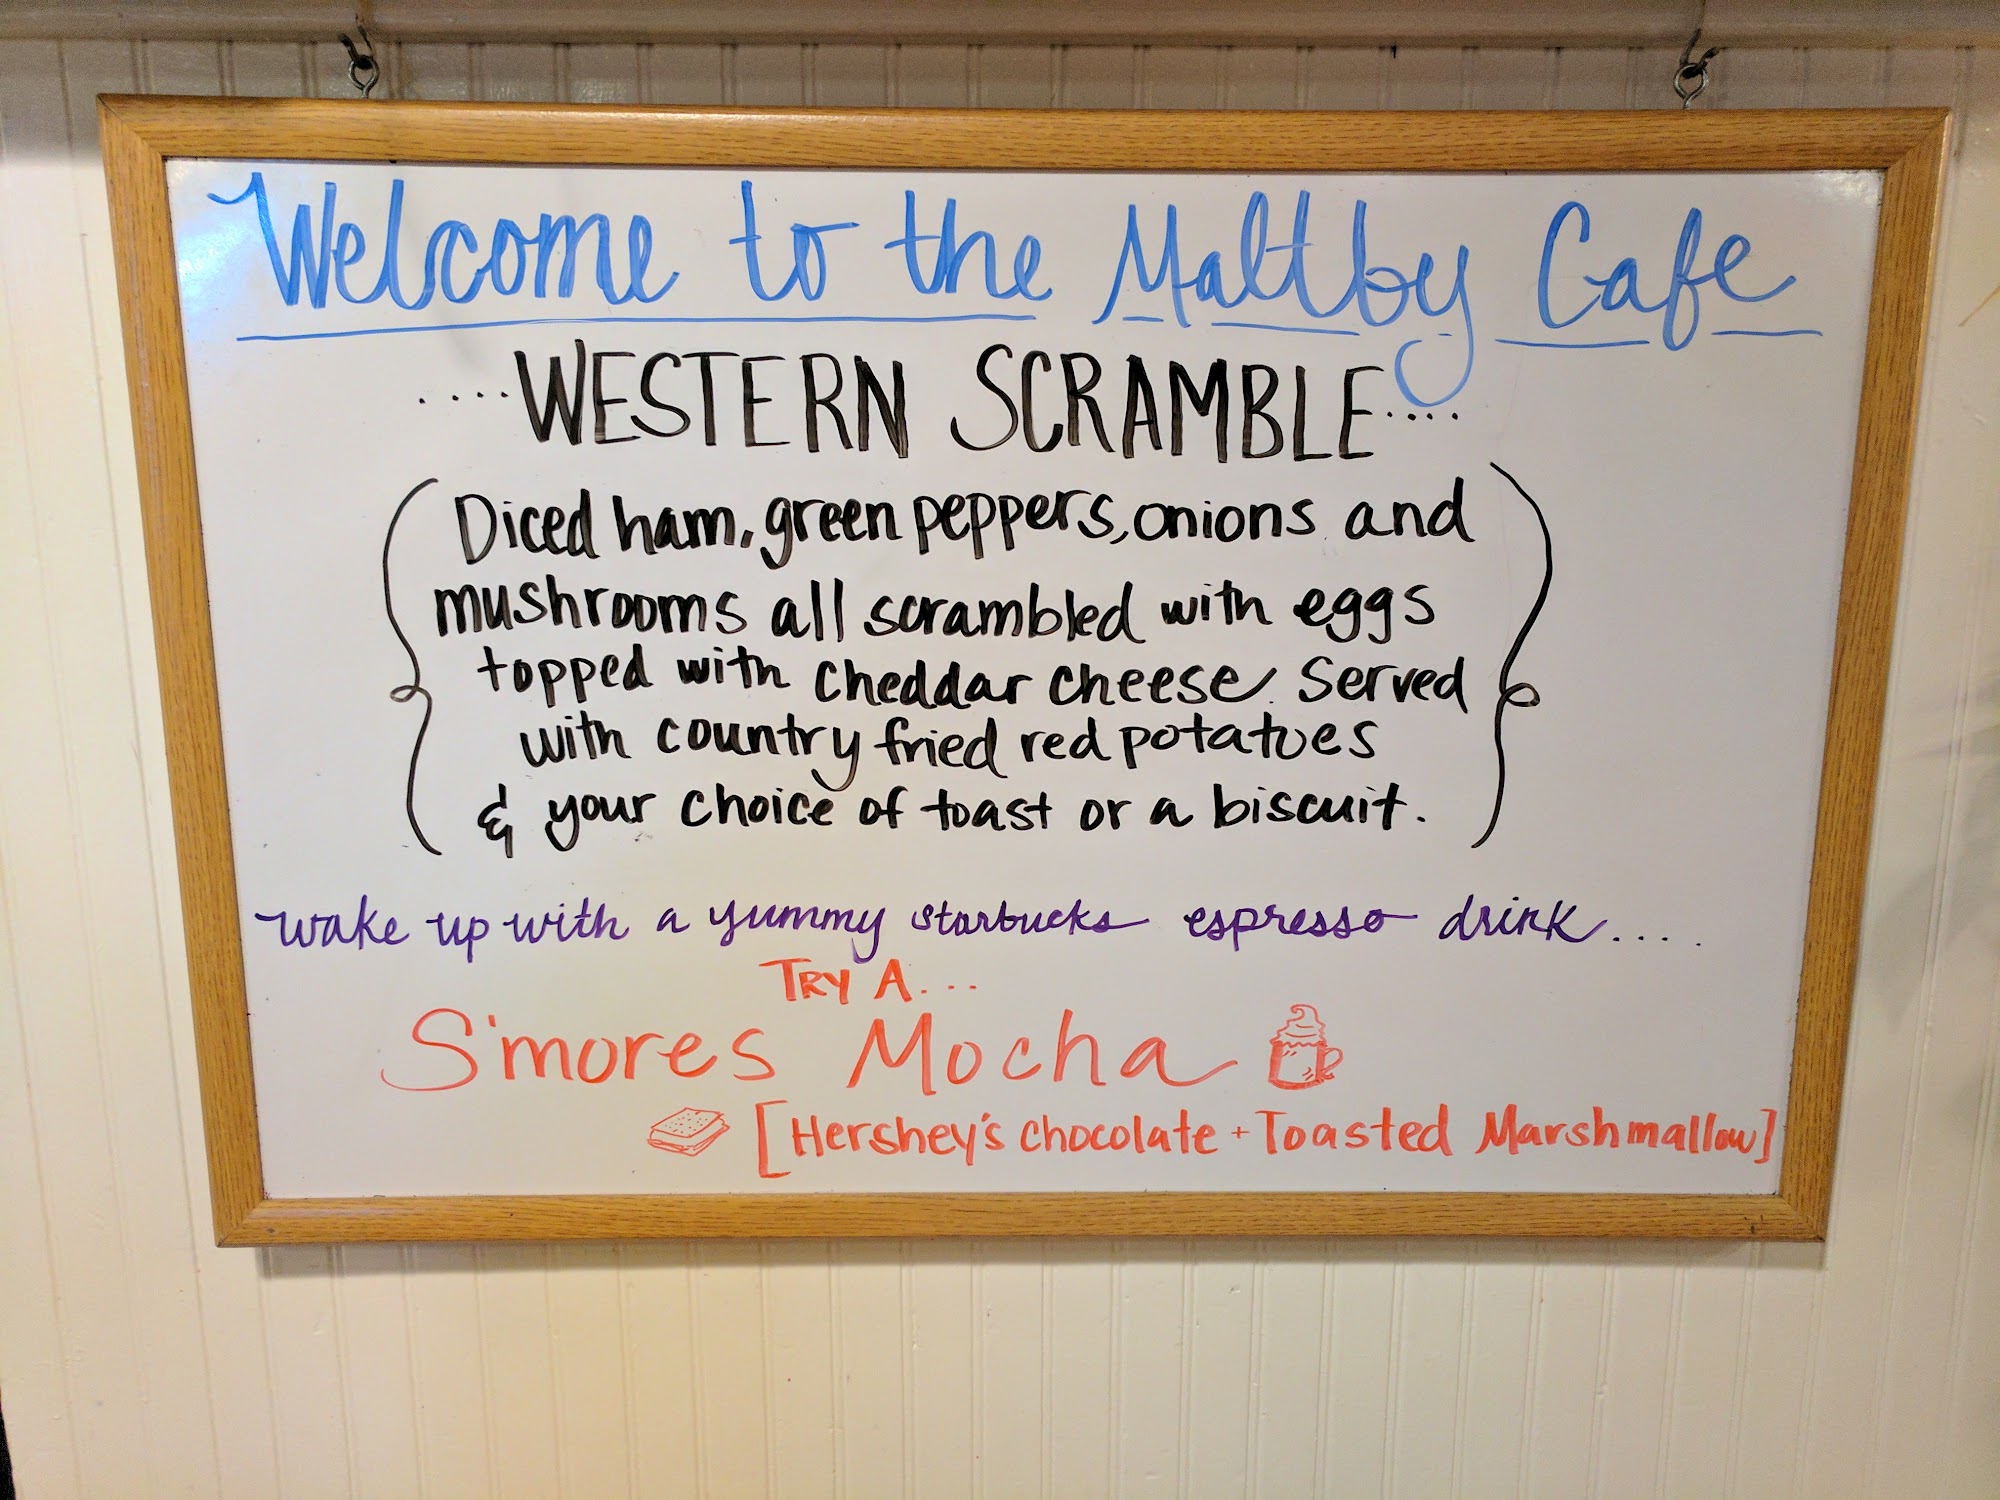 Welcome to the Maltby Cafe
....WESTERN SCRAMBLE....
Diced ham, green peppers, onions and
mushrooms all scrambled with eggs
topped with cheddar cheese. Served
with country fried red potatoes
& your choice of toast or a biscuit.
wake up with a yummy starbucks espresso drink.....
TRY A...
S'mores Mocha
[Hershey's chocolate + Toasted Marshmallow]